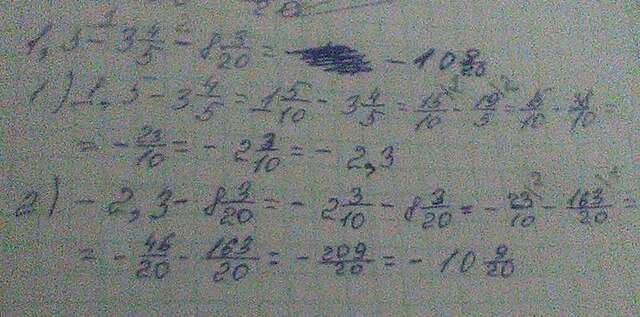 1,5 - 3 4/5 - 8 3/20 = - 10 9/20
1) 1,5 - 3 4/5 = 1 5/10 - 3 4/5 = 15/10 - 19/5 = 15/10 - 38/10 =
= - 23/10 = - 2 3/10 = - 2,3
2) - 2,3 - 8 3/20 = - 2 3/10 - 8 3/20 = - 23/10 - 163/20 =
= - 46/20 - 163/20 = - 209/20 = - 10 9/20